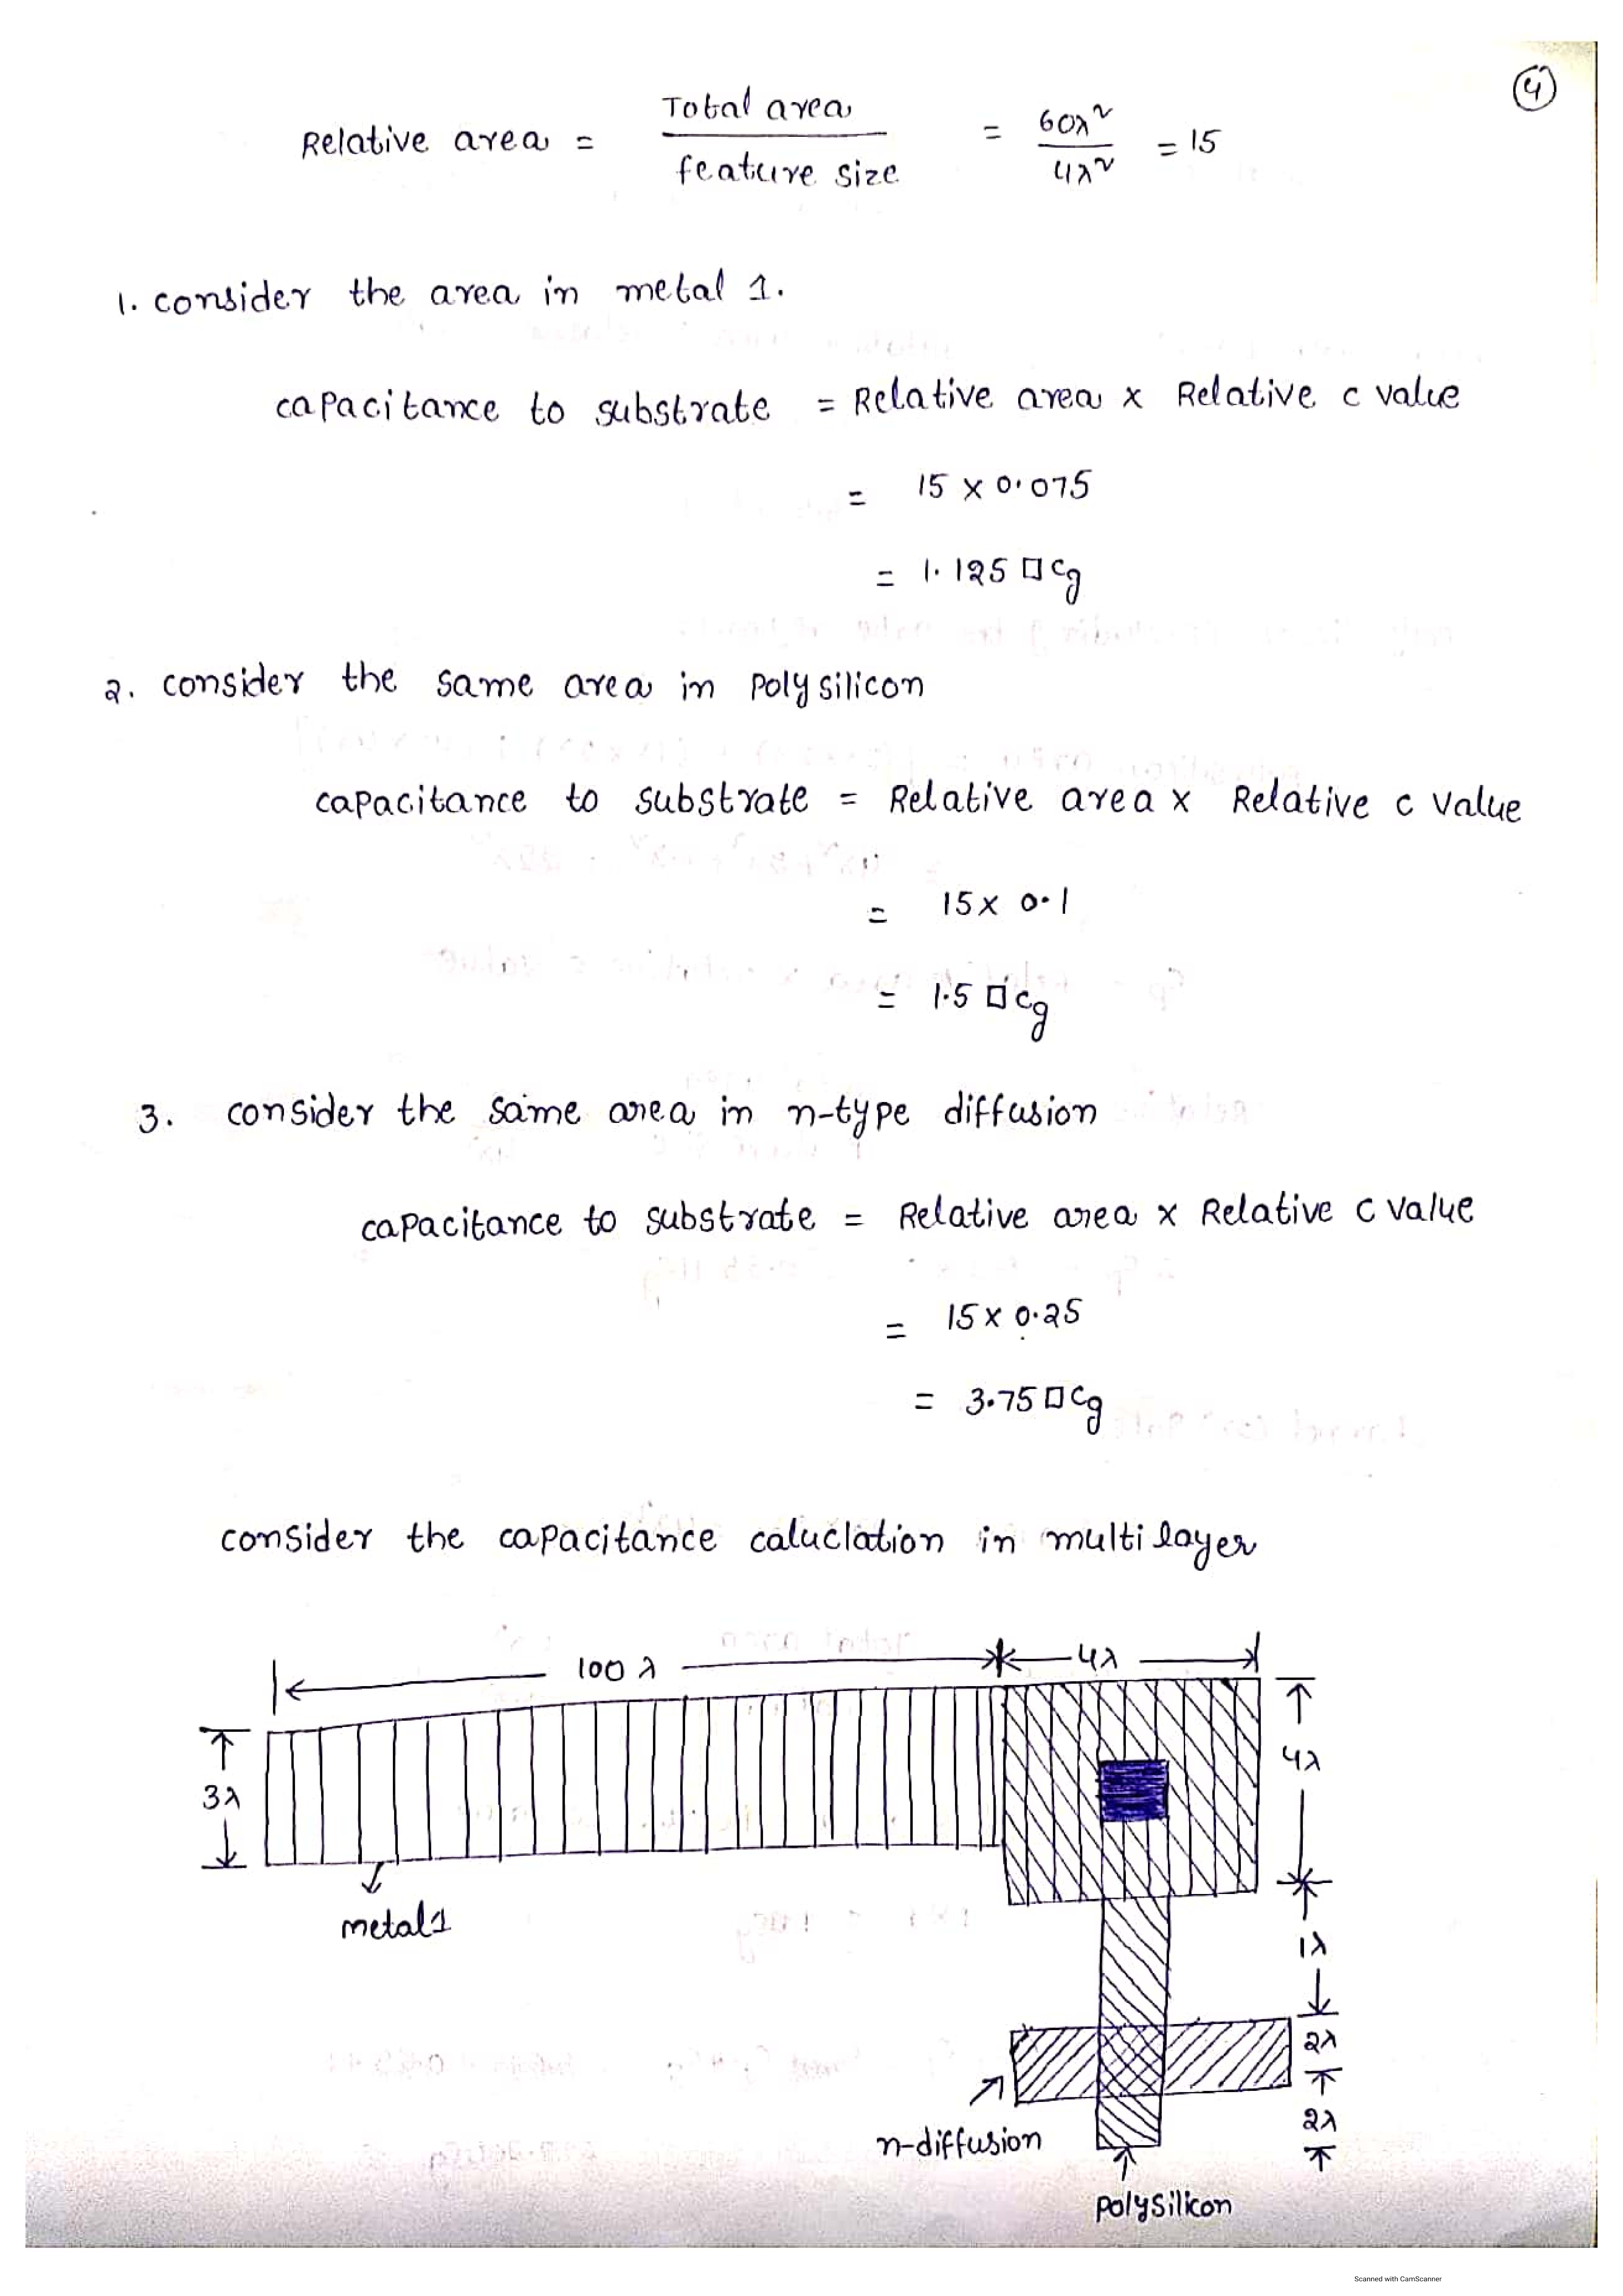 4
Relative area = Total area / feature size = 60λ² / 4λ² = 15
1. consider the area in metal 1.
capacitance to substrate = Relative area x Relative c value
= 15 x 0.075
= 1.125 □Cg
2. consider the same area in polysilicon
capacitance to substrate = Relative area x Relative c value
= 15 x 0.1
= 1.5 □Cg
3. consider the same area in n-type diffusion
capacitance to substrate = Relative area x Relative c value
= 15 x 0.25
= 3.75 □Cg
consider the capacitance caluclation in multilayer
100 λ
4λ
3λ
4λ
metal1
1λ
2λ
2λ
n-diffusion
polysilicon
Scanned with CamScanner